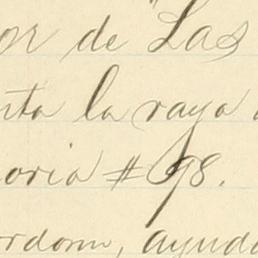 or de "Las
nta la raya
oria # 98.
rdomo, ayuda